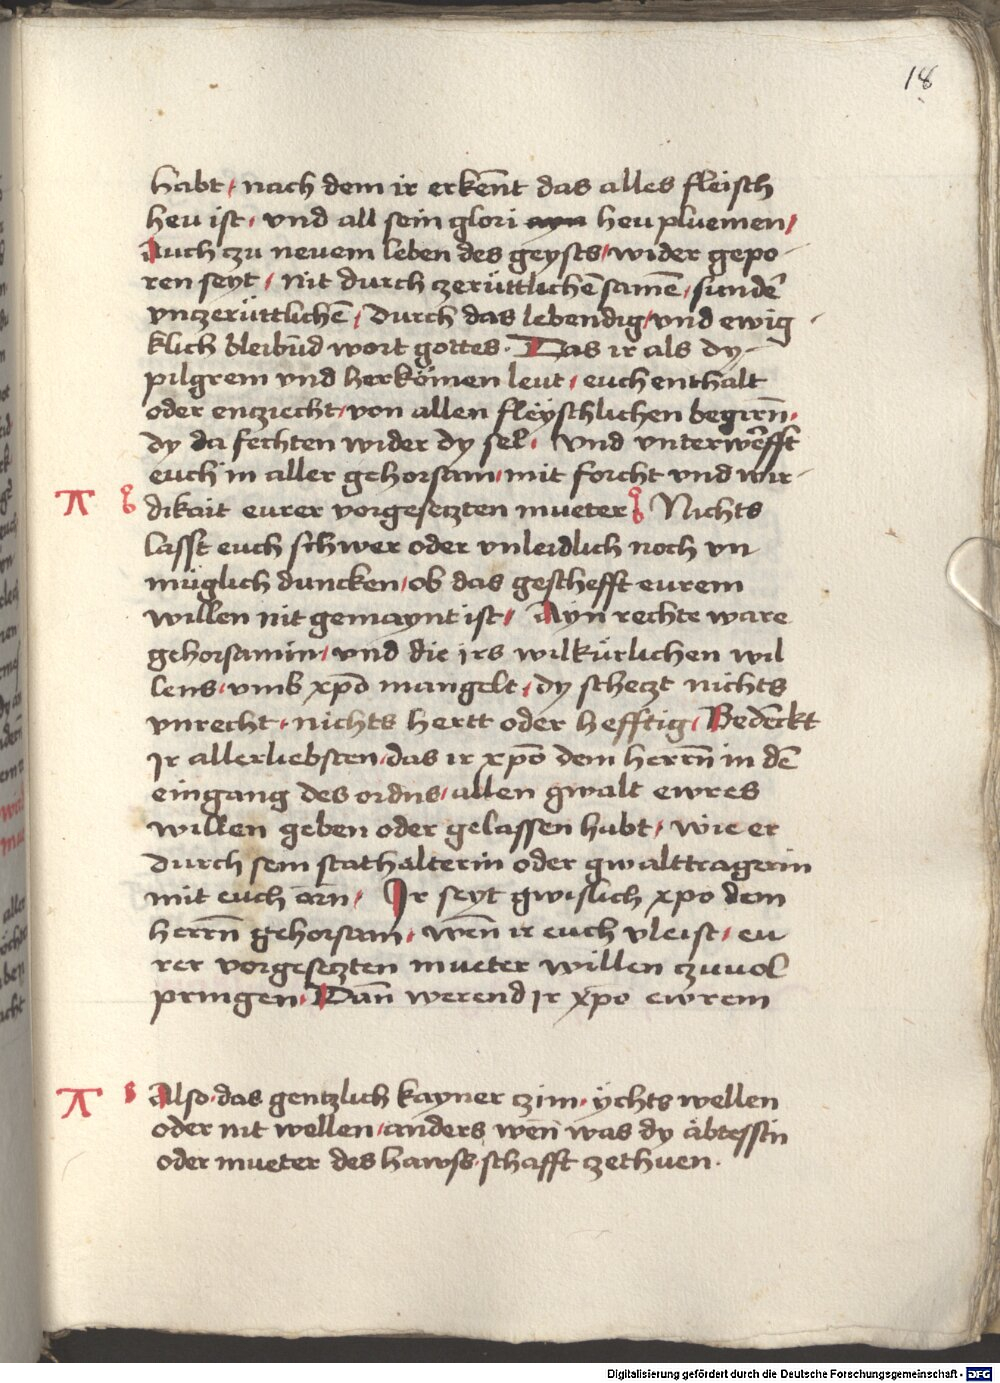 18
habt / nach dem ir erkēnt das alles fleisch
heu ist / vnd all sein glori ayn heu pluemen /
Auch czu neuem leben des geysts / wider gepo-
ren seyt / nit durch czerüttlichē samē / sūnder̄
vnczerüttlichē / durch das lebendig / vnd ewig-
klich bleibūd wort gottes. Das ir als dy-
pilgrem vnd herkömen leut / euch enthalt
oder enczecht / von allen fleyschlichen begirn̄.
dy da fechten wider dy sel. vnd vnterwerfft
euch in aller gehorsam / mit forcht vnd wir-
dikait eurer vorgesetzten mueter Nichts
lasst euch schwer oder vnleidlich noch vn
müglich duncken / ob das geschefft eurem
willen nit gemaynt ist / Ayn rechte ware
gehorsamin / vnd die irs wilkürlichen wil
lens / vmb xp̄o mangelt / dy scheczt nichts
vnrecht / nichts hertt oder hefftig / Bedēckt
Ir allerliebsten / das ir xp̄o dem herrn̄ in dē
eingang des ordns / allen gwalt ewres
willen geben oder gelassen habt / wie er
durch sein stathalterin oder gwalttragerin
mit euch ōrn̄ / Ir seyt gwislich xpo dem
herrn̄ gehorsam / wēn ir euch vleist / eu
rer vorgesetzten mueter willen czuuol
pringen. Dan̄ werend Ir xp̄o ewrem
Also / das gentzlich kayner czim / ychts wellen
oder nit wellen / anders wen̄ was dy äbtessin
oder mueter des hawss / schafft zethuen.
Digitalisierung gefördert durch die Deutsche Forschungsgemeinschaft - DFG